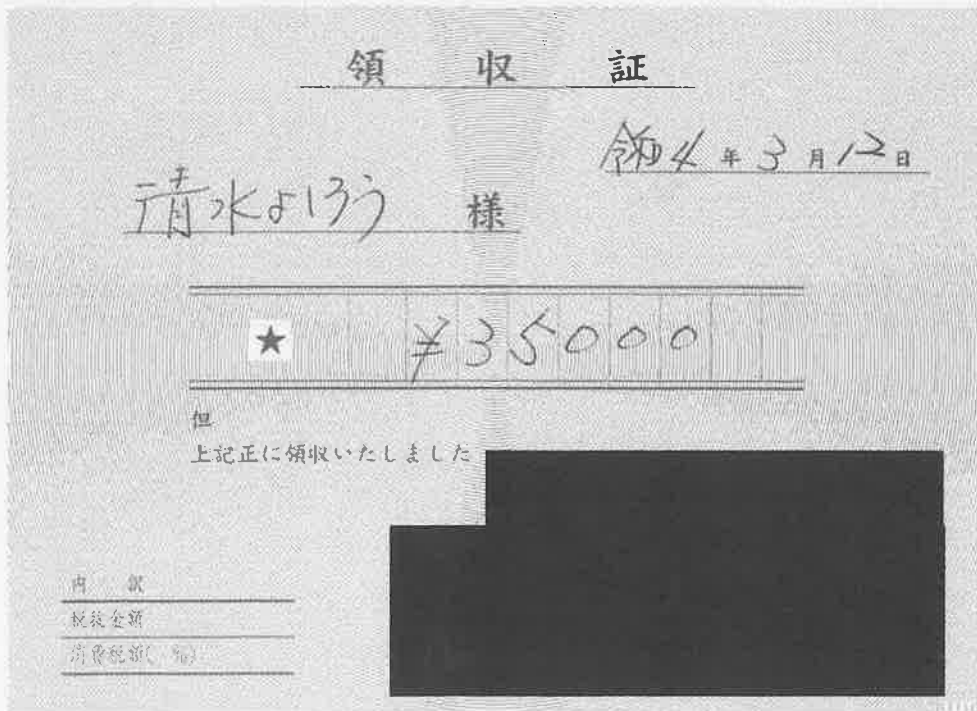 領収証
令和4年3月12日
清水よしろう 様
★ ¥35000
但
上記正に領収いたしました
内訳
税抜金額
消費税額( %)